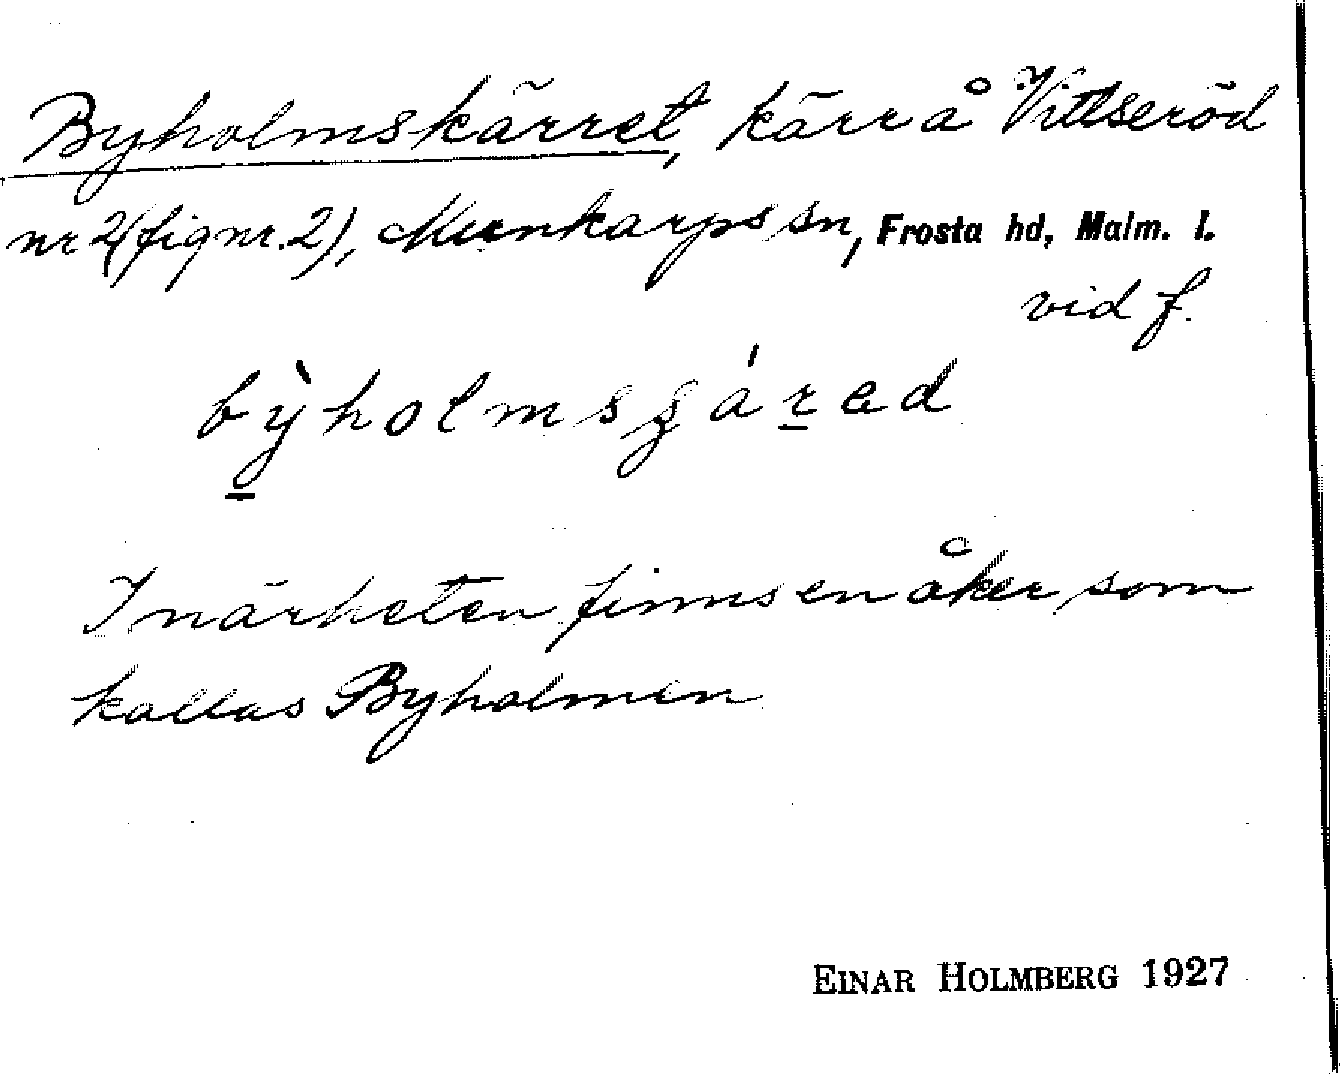 Byholmskärret, kärr å Vittseröd
nr 2 (fig nr. 2), Munkarps sn, Frosta hd, Malm. l.
vid f.
I närheten finns en åker som
kallas Byholmen
EINAR HOLMBERG 1927